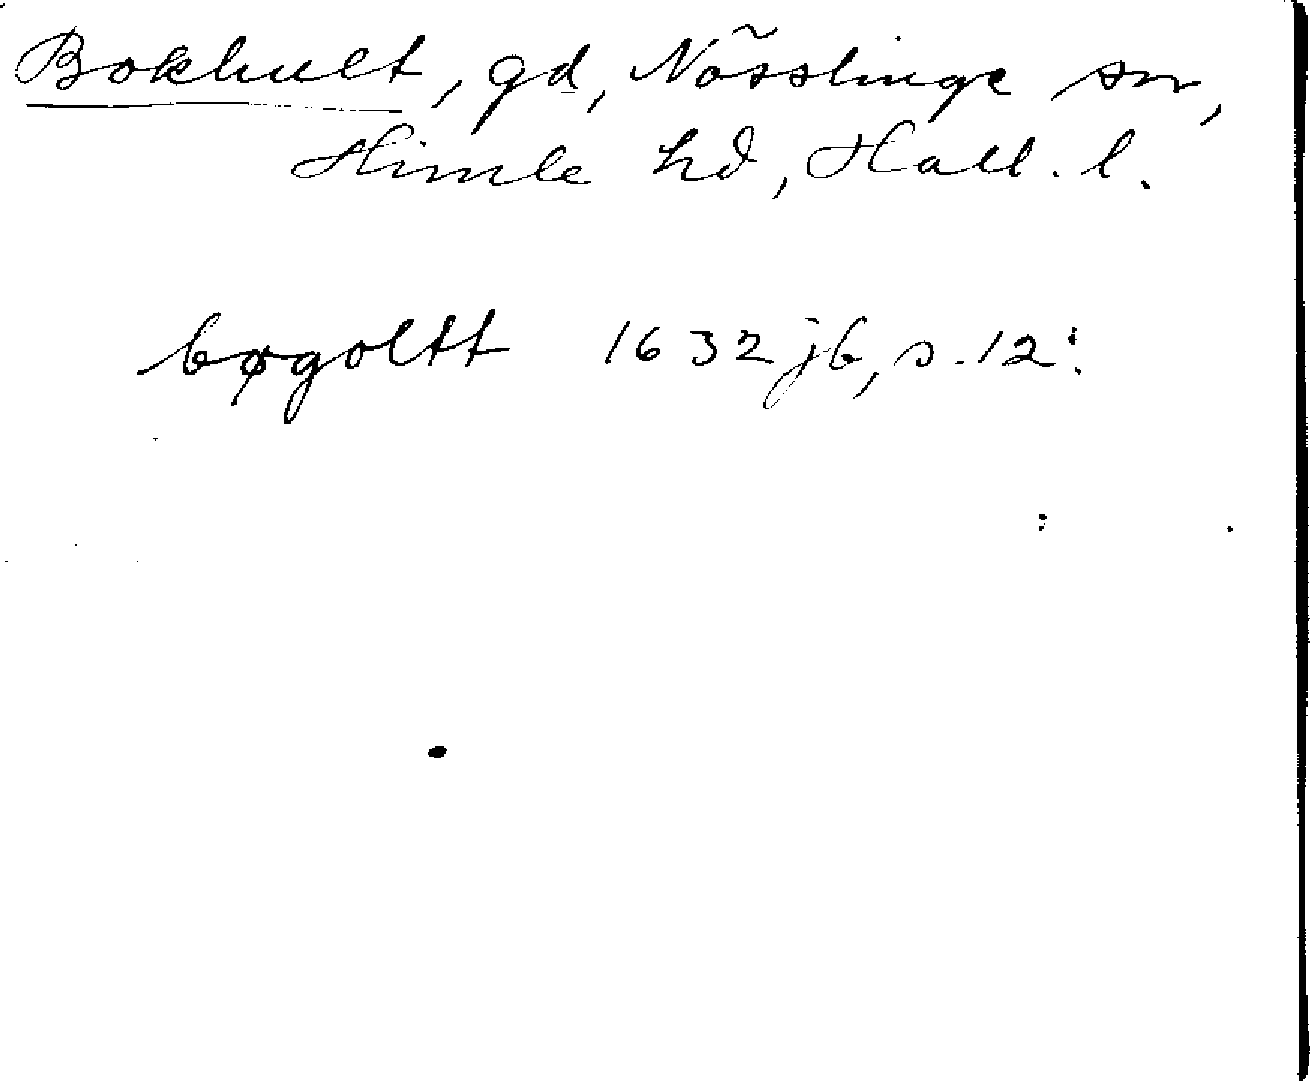 Bokhult, gd, Nösslinge sn,
Himle hd, Hall. l.
bøgoltt 1632 jb, s. 12.